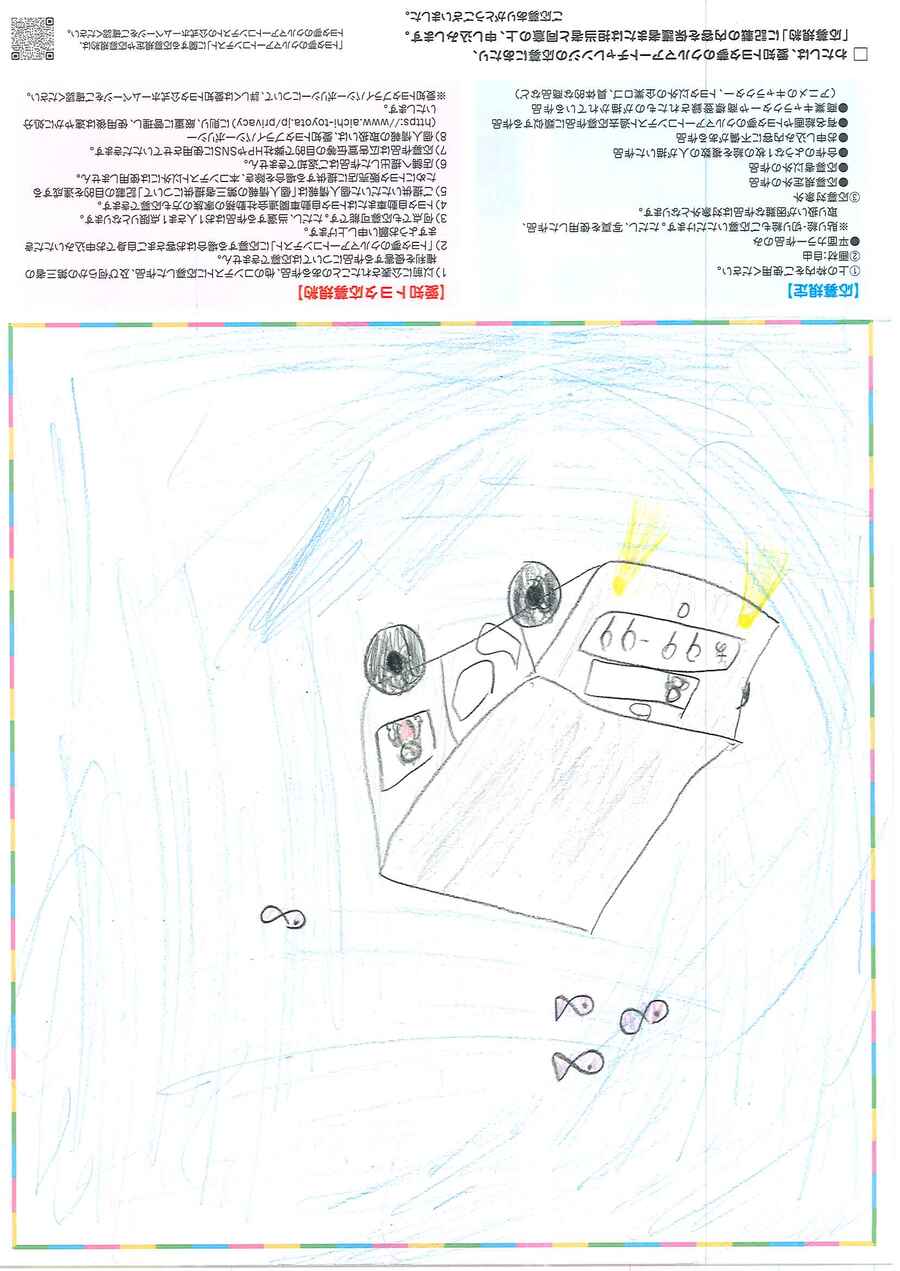 【応募規定】
①上の枠内をご使用ください。
②画材:自由
●平面カラー作品のみ
※貼り絵・切り絵もご応募いただけます。ただし、写真を使用した作品、
取り扱いが困難な作品は対象外となります。
③応募対象外
●応募規定外の作品
●応募者以外の作品
●合作のような1枚の絵を複数の人が描いた作品
●お申し込み内容に不備がある作品
●有名絵画やトヨタ夢のクルマアートコンテスト過去応募作品に類似する作品
●商業キャラクターや商標登録されたものが描かれている作品
(アニメのキャラクター、トヨタ以外の企業ロゴ、具体的な商品など)
【愛知トヨタ応募規約】
1)以前に公表されたことのある作品、他のコンテストに応募した作品、及び何らかの第三者の
権利を侵害する作品については応募できません。
2)「トヨタ夢のクルマアートコンテスト」に応募する場合はお客さまご自身でお申込みいただき
ますようお願い申し上げます。
3)何点でも応募可能です。ただし、当選する作品はお1人さま1点限りとなります。
4)トヨタ自動車またはトヨタ自動車関連会社勤務の家族の方も応募できます。
5)ご提供いただいた個人情報は「個人情報の第三者提供について」記載の目的を達成する
ためにトヨタ販売店に提供する場合を除き、本コンテスト以外には使用しません。
6)店頭へ提出した作品はご返却できません。
7)応募作品は広告宣伝等の目的で弊社HPやSNSに使用させていただきます。
8)個人情報の取扱いは、愛知トヨタプライバシーポリシー
(https://www.aichi-toyota.jp/privacy)に則り、厳重に管理し、使用後は速やかに処分
いたします。
※愛知トヨタプライバシーポリシーについて、詳しくは愛知トヨタ公式ホームページをご確認ください。
□ わたしは、愛知トヨタ夢のクルマアートチャレンジの応募にあたり、
「応募規約」に記載の内容を保護者または担当者と同意の上、申し込みします。
ご応募ありがとうございました。
「トヨタ夢のクルマアートコンテスト」に関する応募規定や応募規約は、
トヨタ夢のクルマアートコンテストの公式ホームページをご確認ください。